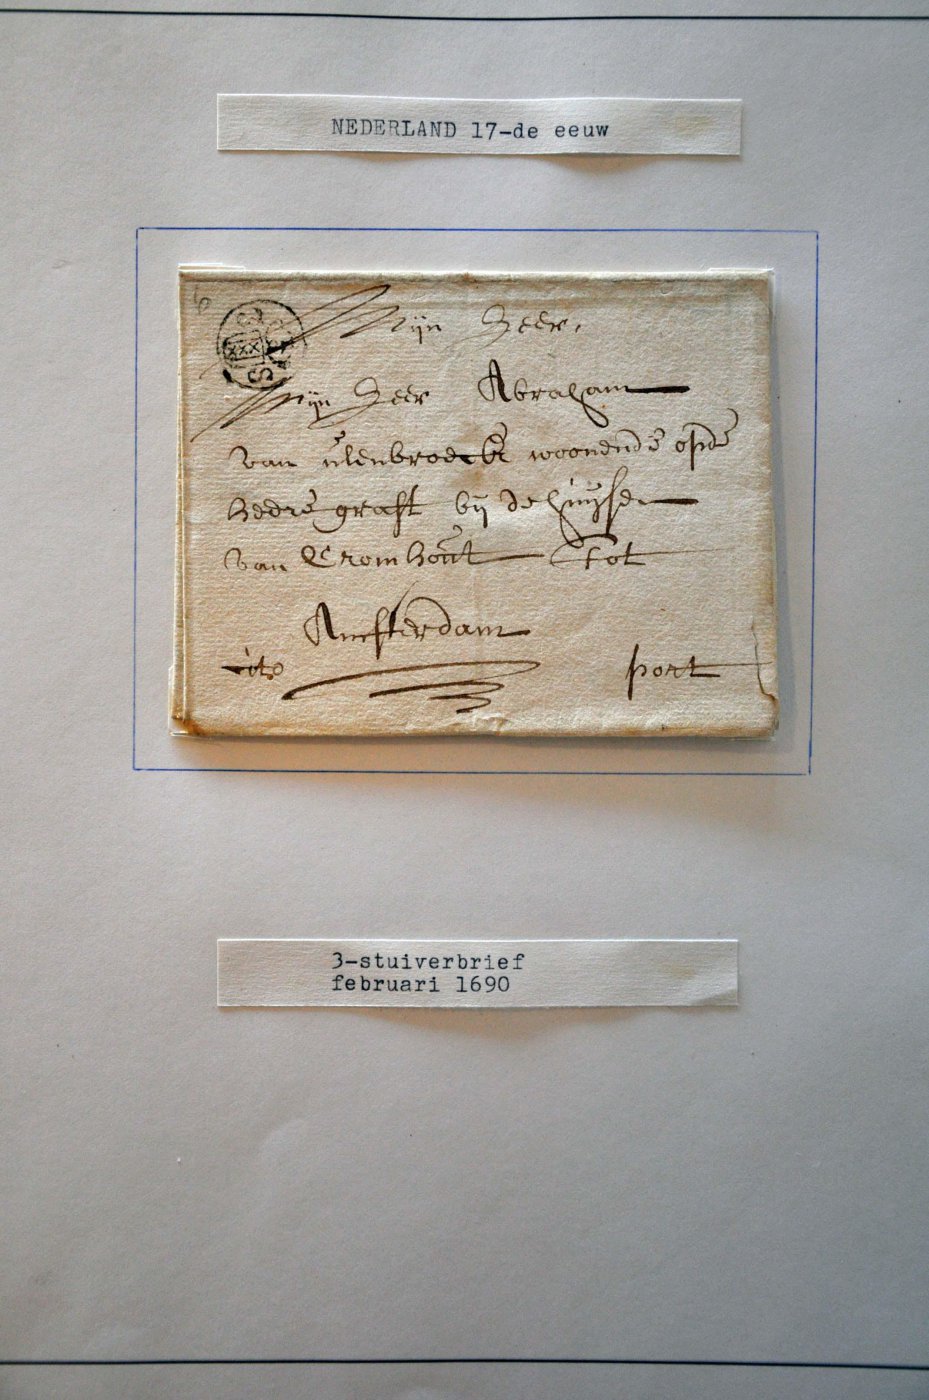 NEDERLAND 17-de eeuw
Mijn Heer,
Mijn Heer Abraham
van ulenbroeck woonende opde
heere graft bij de huijsen
van Cromhout tot
Amsterdam
port
3-stuiverbrief
februari 1690